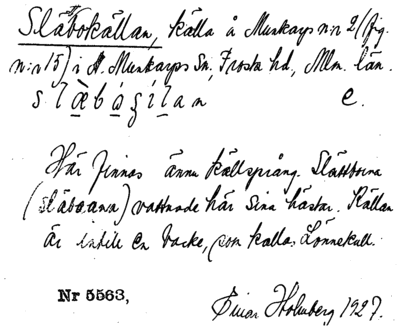 Släbokällan, källa å Munkarps n:r 2 (fig.
n:r 15) i H. Munkarps Sn, Frosta hd, Mlm. län.
slæbágílan e.
Här finnas ännu källsprång. Slättborna
(slábæana) vattnade här sina hästar. Källan
är intill en backe, som kallas Lönnekull.
Nr 5563, Einar Holmberg 1927.